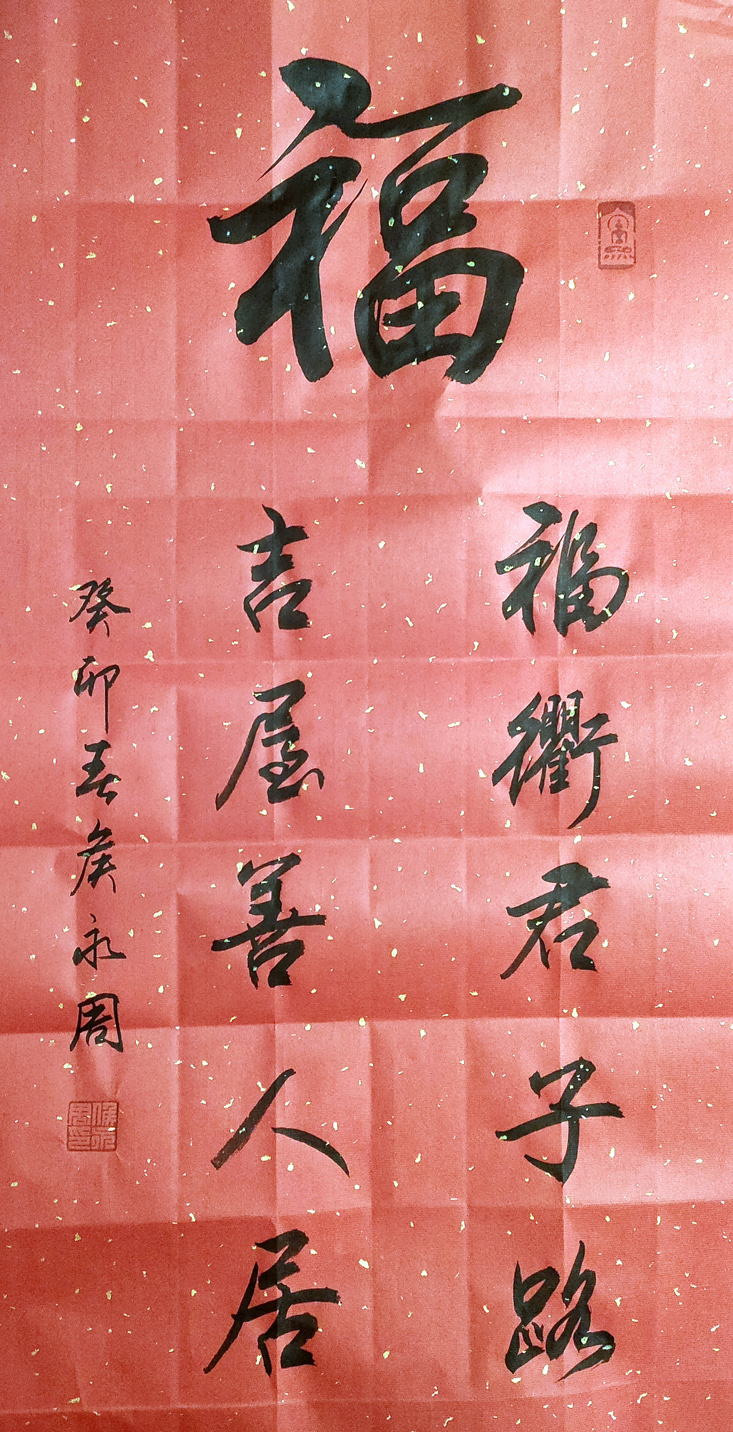 福
福衢君子路
吉屋善人居
癸卯春侯永周